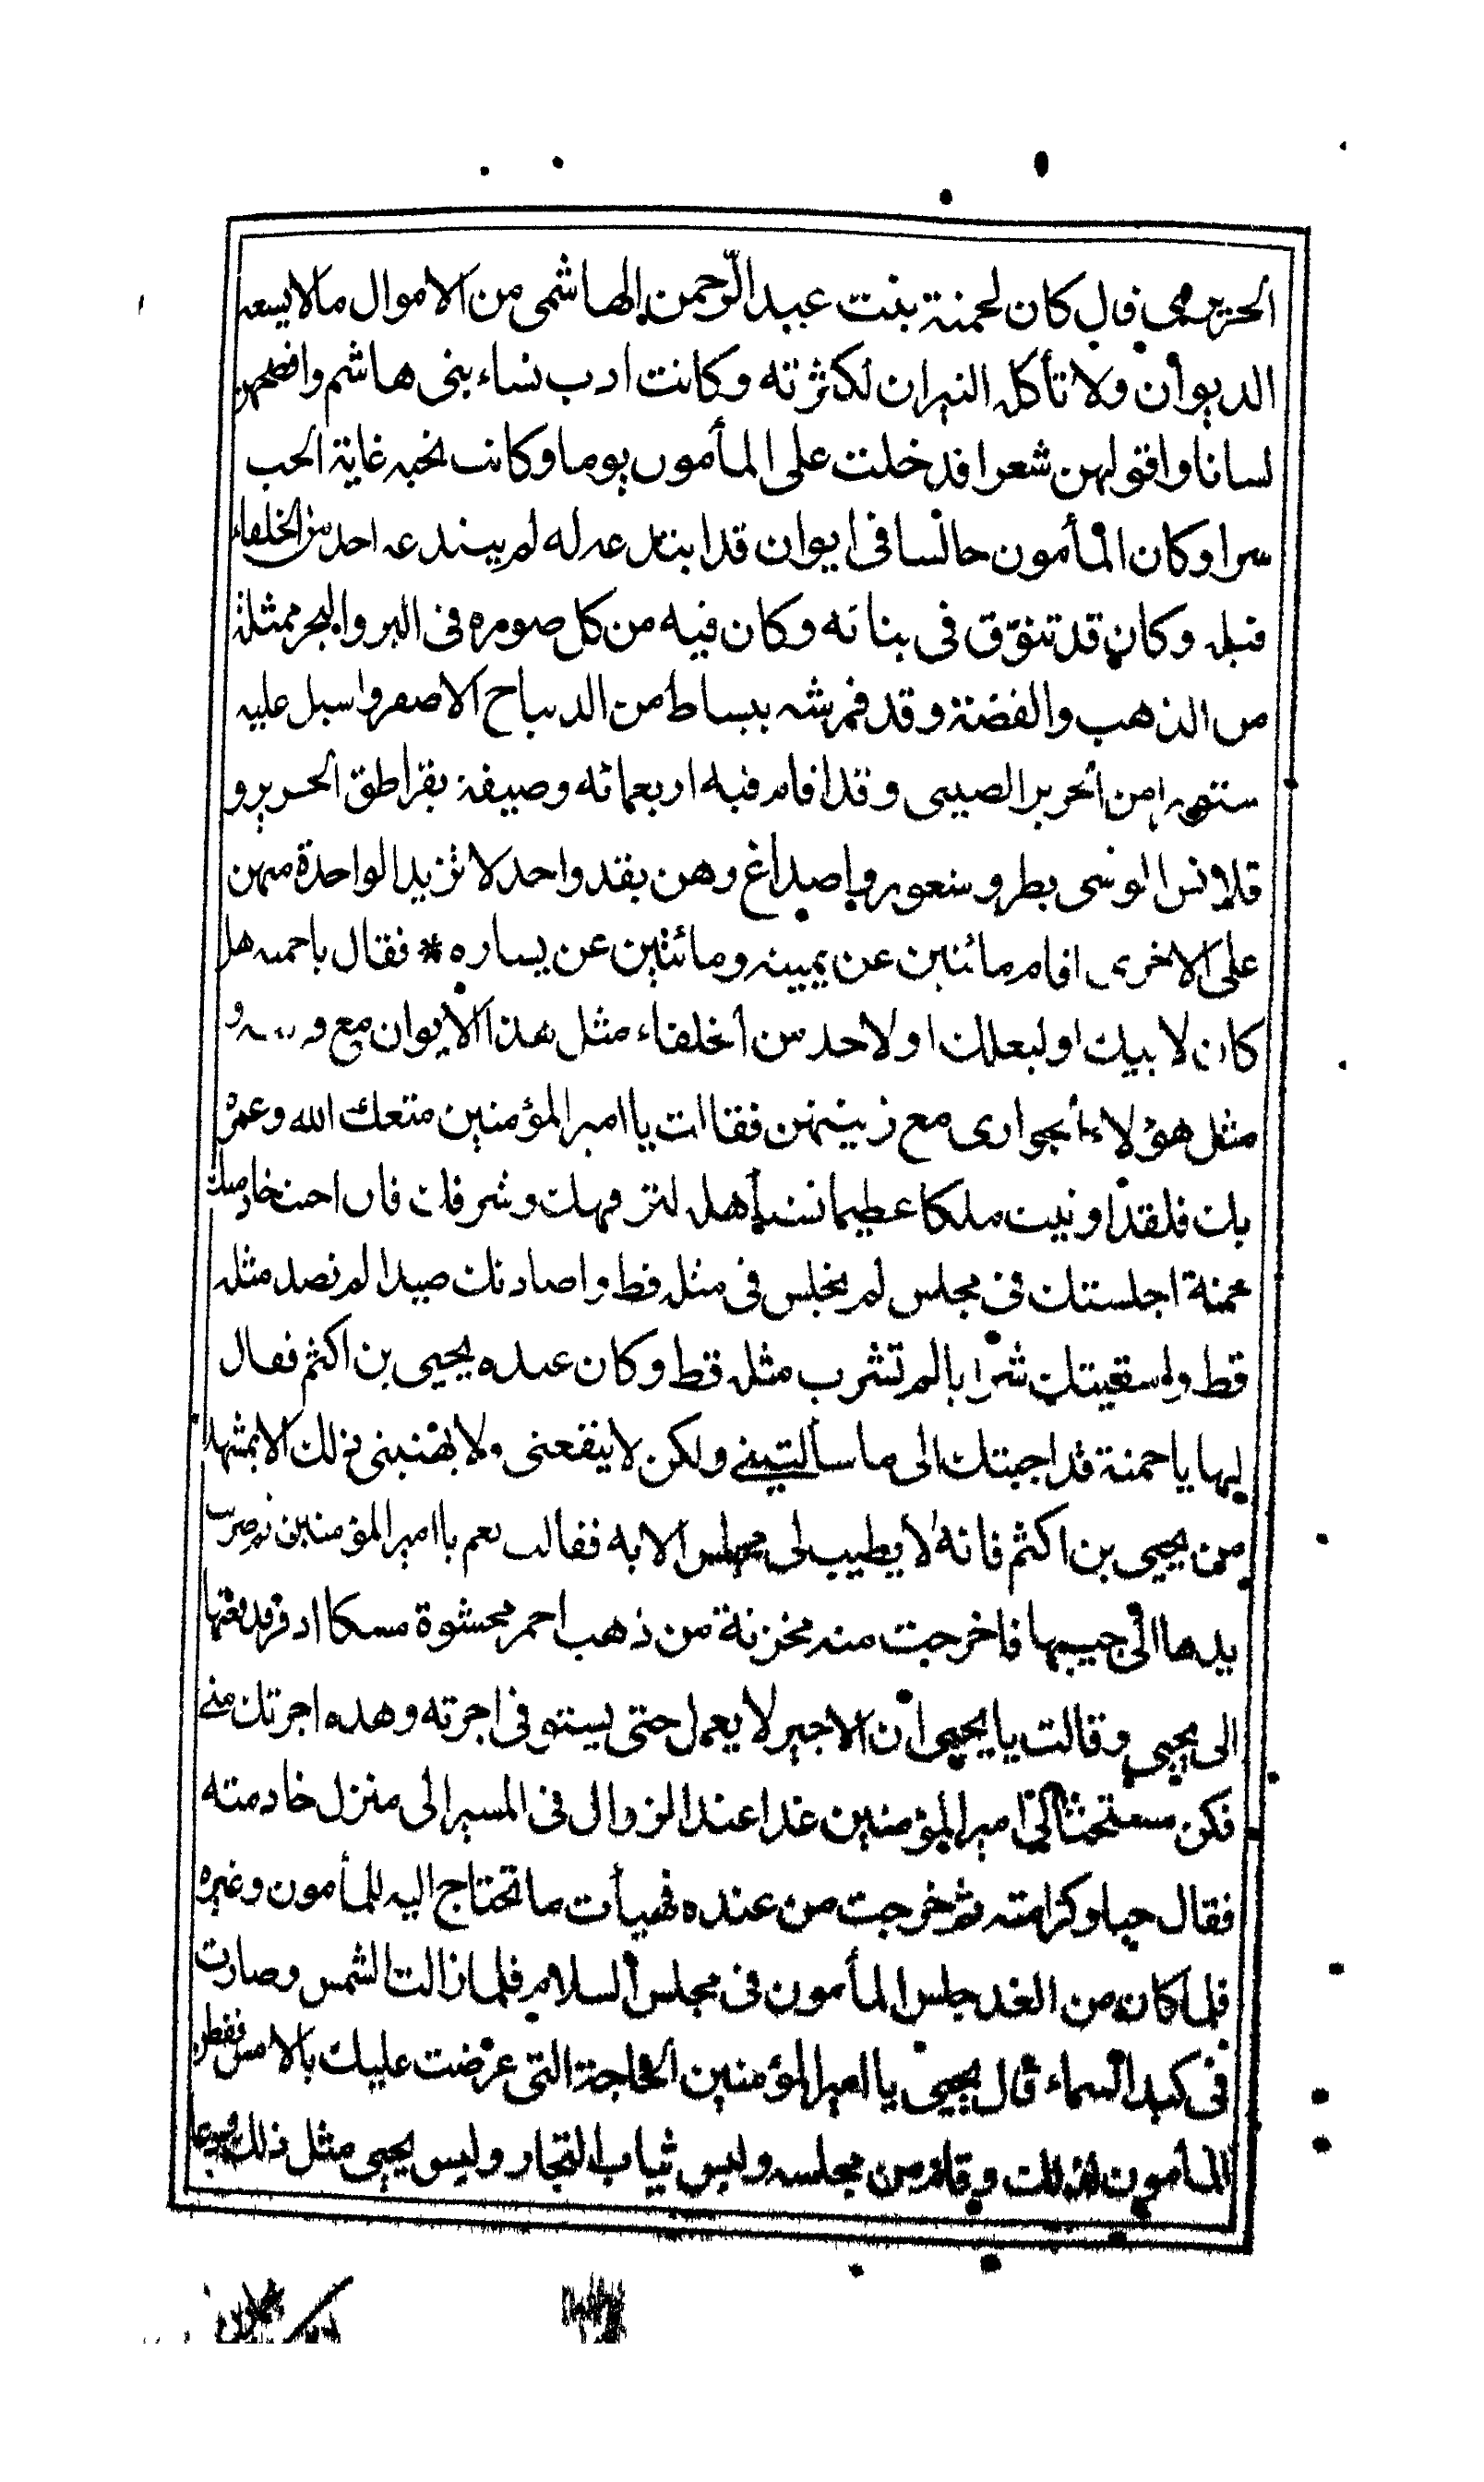 قال كان لحمنة بنت عبد الرحمن الهاشمى من الاموال مالا يسعه
الديوان ولا تأكله النيران لكثرته وكانت ادب نساء بنى هاشم وافصحهن
لسانا واقولهن شعرا فدخلت على المأمون يوما وكانت تحبه غاية الحب
سرا وكان المأمون جالسا فى ايوان قد ابتدعه له لم يبتدعه احد من الخلفاء
قبله وكان قد تنوّق فى بنائه وكان فيه من كل صورة فى البر والبحر ممثلة
من الذهب والفضة وقد فرشه ببساط من الديباج الاصفر واسبل عليه
ستورا من الحرير الصينى وقد اقام فيه اربعمائة وصيفة بقراطق الحرير و
قلانس الوشى بطرر وشعور واصداغ وهن بقد واحد لا تزيد الواحدة منهن
على الاخرى اقام مائتين عن يمينه ومائتين عن يساره * فقال يا حمنه هل
كان لابيك او لبعلك او لاحد من الخلفاء مثل هذا الايوان مع
مثل هؤلاء الجوارى مع زينتهن فقالت يا امير المؤمنين متعك الله وعمره
بك فلقد اوتيت ملكا عظيما لتزفهك وشرفك فان احبت خادمتك
حمنة اجلستك فى مجلس لم تجلس فى مثله قط واصادتك صيدا لم تصد مثله
قط واسقيتك شرابا لم تشرب مثله قط وكان عنده يحيى بن اكثم فقال
لها يا حمنة قد اجبتك الى ما سألتينى ولكن لا ينفعنى ولا يهنينى ذلك الا بمشهد
من يحيى بن اكثم فانه لا يطيب لى مجلس الا به فقالت نعم يا امير المؤمنين ثم ضربت
يدها الى جيبها فاخرجت منه مخزنة من ذهب احمر محشوة مسكا اذفر فدفعتها
الى يحيى وقالت يا يحيى ان الاجير لا يعمل حتى يستوفى اجرته وهذه اجرتك منى
فكن مستحثا لى امير المؤمنين غدا عند الزوال فى المسير الى منزل خادمته
فقال حبا وكرامته ثم خرجت من عنده فهيأت ما تحتاج اليه للمأمون وغيره
فلما كان من الغد جلس المأمون فى مجلس السلام فلما زالت الشمس وصارت
فى كبد السماء قال يحيى يا امير المؤمنين الحاجة التى عرضت عليك بالامس ففطن
المأمون لذلك وقام من مجلسه ولبس ثياب التجار ولبس يحيى مثل ذلك